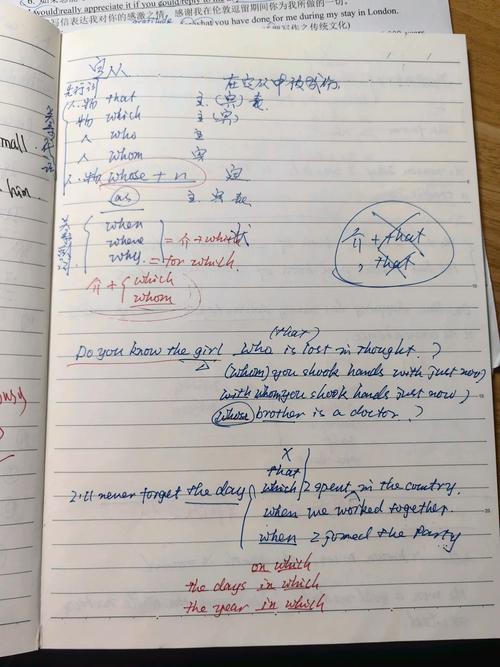 would really appreciate it if you could reply to my
写信表达我对你的感激之情，感谢我在伦敦逗留期间你为我所做的一切。
what you have done for me during my stay in London.
定从
先行词 在定从中被成份
人.物 that 主.(宾) 表
物 which 主(宾)
人 who 主
人 whom 宾
人.物 whose + n 定
as 主.宾表
关系代词
mall.
him.
when
where = 介 + which 状
why = for which.
介 + { which
whom
介 + that
, that
(that)
Do you know the girl who is lost in thought.?
(whom) you shook hands with just now?
with whom you shook hands just now?
whose brother is a doctor.?
X
that
I'll never forget the day which I spent in the country.
when we worked together.
when I joined the Party
on which
the days in which
the year in which